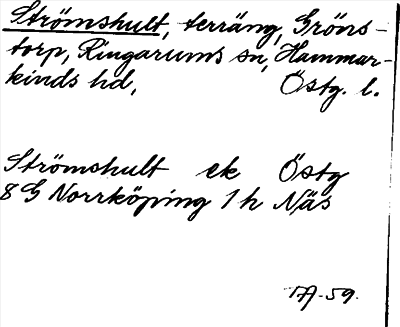 Strömshult, terräng, Gröns-
torp, Ringarums sn, Hammar-
kinds hd, Östg. l.
Strömshult ek Östg
8 G Norrköping 1 h Näs
TA-59.